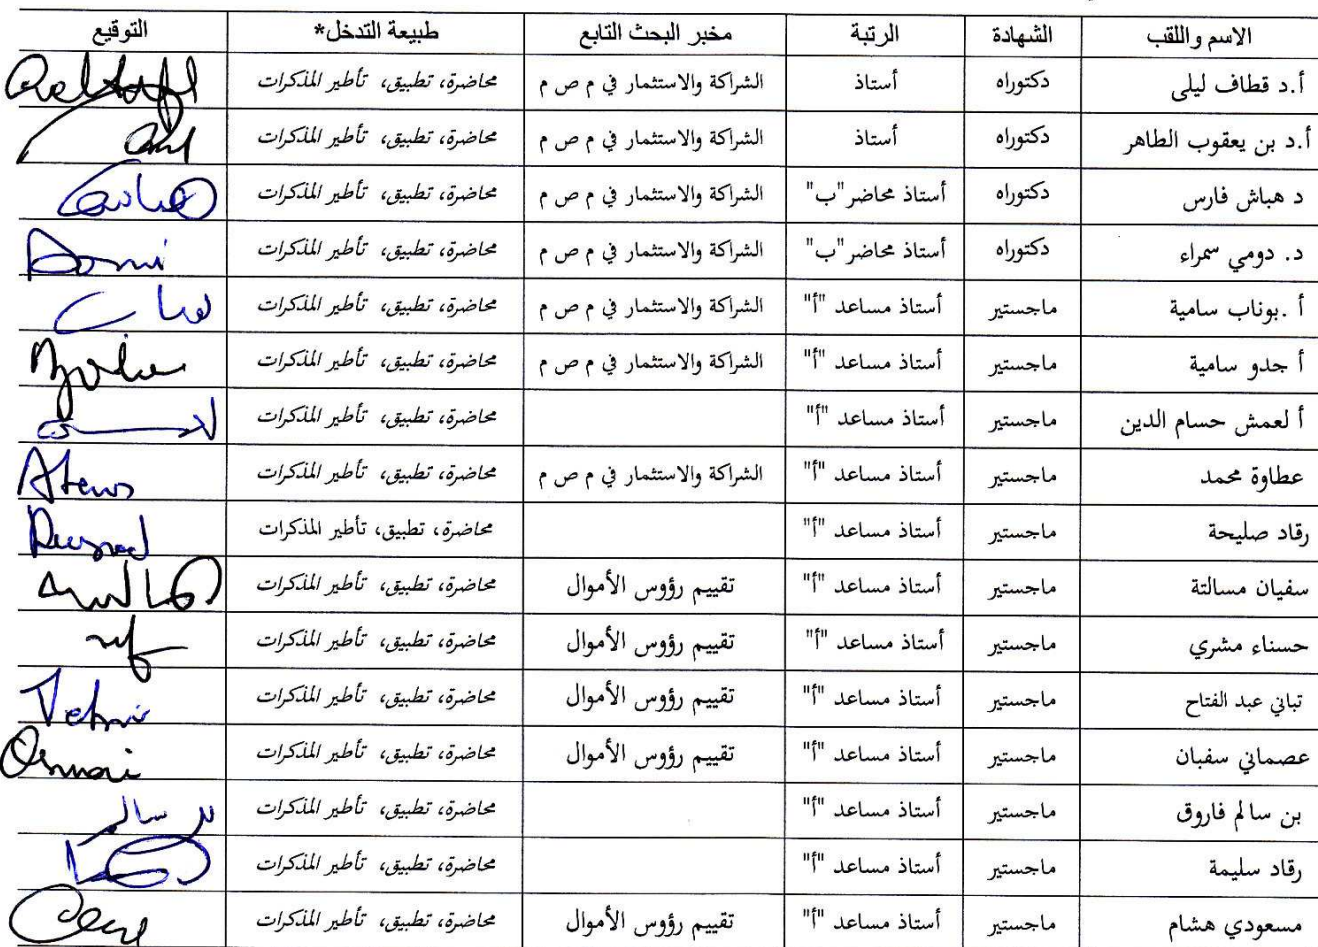 الاسم واللقب الشهادة الرتبة مخبر البحث التابع طبيعة التدخل* التوقيع
أ.د قطاف ليلى دكتوراه أستاذ الشراكة والاستثمار في م ص م محاضرة، تطبيق، تأطير المذكرات
أ.د بن يعقوب الطاهر دكتوراه أستاذ الشراكة والاستثمار في م ص م محاضرة، تطبيق، تأطير المذكرات
د هباش فارس دكتوراه أستاذ محاضر"ب" الشراكة والاستثمار في م ص م محاضرة، تطبيق، تأطير المذكرات
د. دومي سمراء دكتوراه أستاذ محاضر"ب" الشراكة والاستثمار في م ص م محاضرة، تطبيق، تأطير المذكرات Domi
أ .بوناب سامية ماجستير أستاذ مساعد "أ" الشراكة والاستثمار في م ص م محاضرة، تطبيق، تأطير المذكرات
أ جدو سامية ماجستير أستاذ مساعد "أ" الشراكة والاستثمار في م ص م محاضرة، تطبيق، تأطير المذكرات
أ لعمش حسام الدين ماجستير أستاذ مساعد "أ" محاضرة، تطبيق، تأطير المذكرات
عطاوة محمد ماجستير أستاذ مساعد "أ" الشراكة والاستثمار في م ص م محاضرة، تطبيق، تأطير المذكرات
رقاد صليحة ماجستير أستاذ مساعد "أ" محاضرة، تطبيق، تأطير المذكرات
سفيان مسالتة ماجستير أستاذ مساعد "أ" تقييم رؤوس الأموال محاضرة، تطبيق، تأطير المذكرات
حسناء مشري ماجستير أستاذ مساعد "أ" تقييم رؤوس الأموال محاضرة، تطبيق، تأطير المذكرات
تباني عبد الفتاح ماجستير أستاذ مساعد "أ" تقييم رؤوس الأموال محاضرة، تطبيق، تأطير المذكرات
عصماني سفبان ماجستير أستاذ مساعد "أ" تقييم رؤوس الأموال محاضرة، تطبيق، تأطير المذكرات
بن سالم فاروق ماجستير أستاذ مساعد "أ" محاضرة، تطبيق، تأطير المذكرات بن سالم
رقاد سليمة ماجستير أستاذ مساعد "أ" محاضرة، تطبيق، تأطير المذكرات
مسعودي هشام ماجستير أستاذ مساعد "أ" تقييم رؤوس الأموال محاضرة، تطبيق، تأطير المذكرات